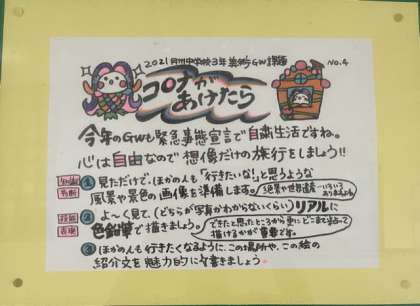 2021 中学校3年 美術 GW課題 No.4
コロナが
あけたら
今年のGWも緊急事態宣言で自粛生活ですね。
心は自由なので想像だけの旅行をしましょう!!
① 見ただけで、ほかの人も「行きたいな!」と思うような
風景や景色の画像を準備します。
絶景や世界遺産…いろいろありますよね。
② よ〜く見て、(どちらが写真かわからないくらい)リアルに
色鉛筆で描きましょう。
表現
できたと思ったところから更にどこまで粘って描けるかが重要です。
③ ほかの人も行きたくなるように、この場所や、この絵の
紹介文を魅力的に書きましょう。